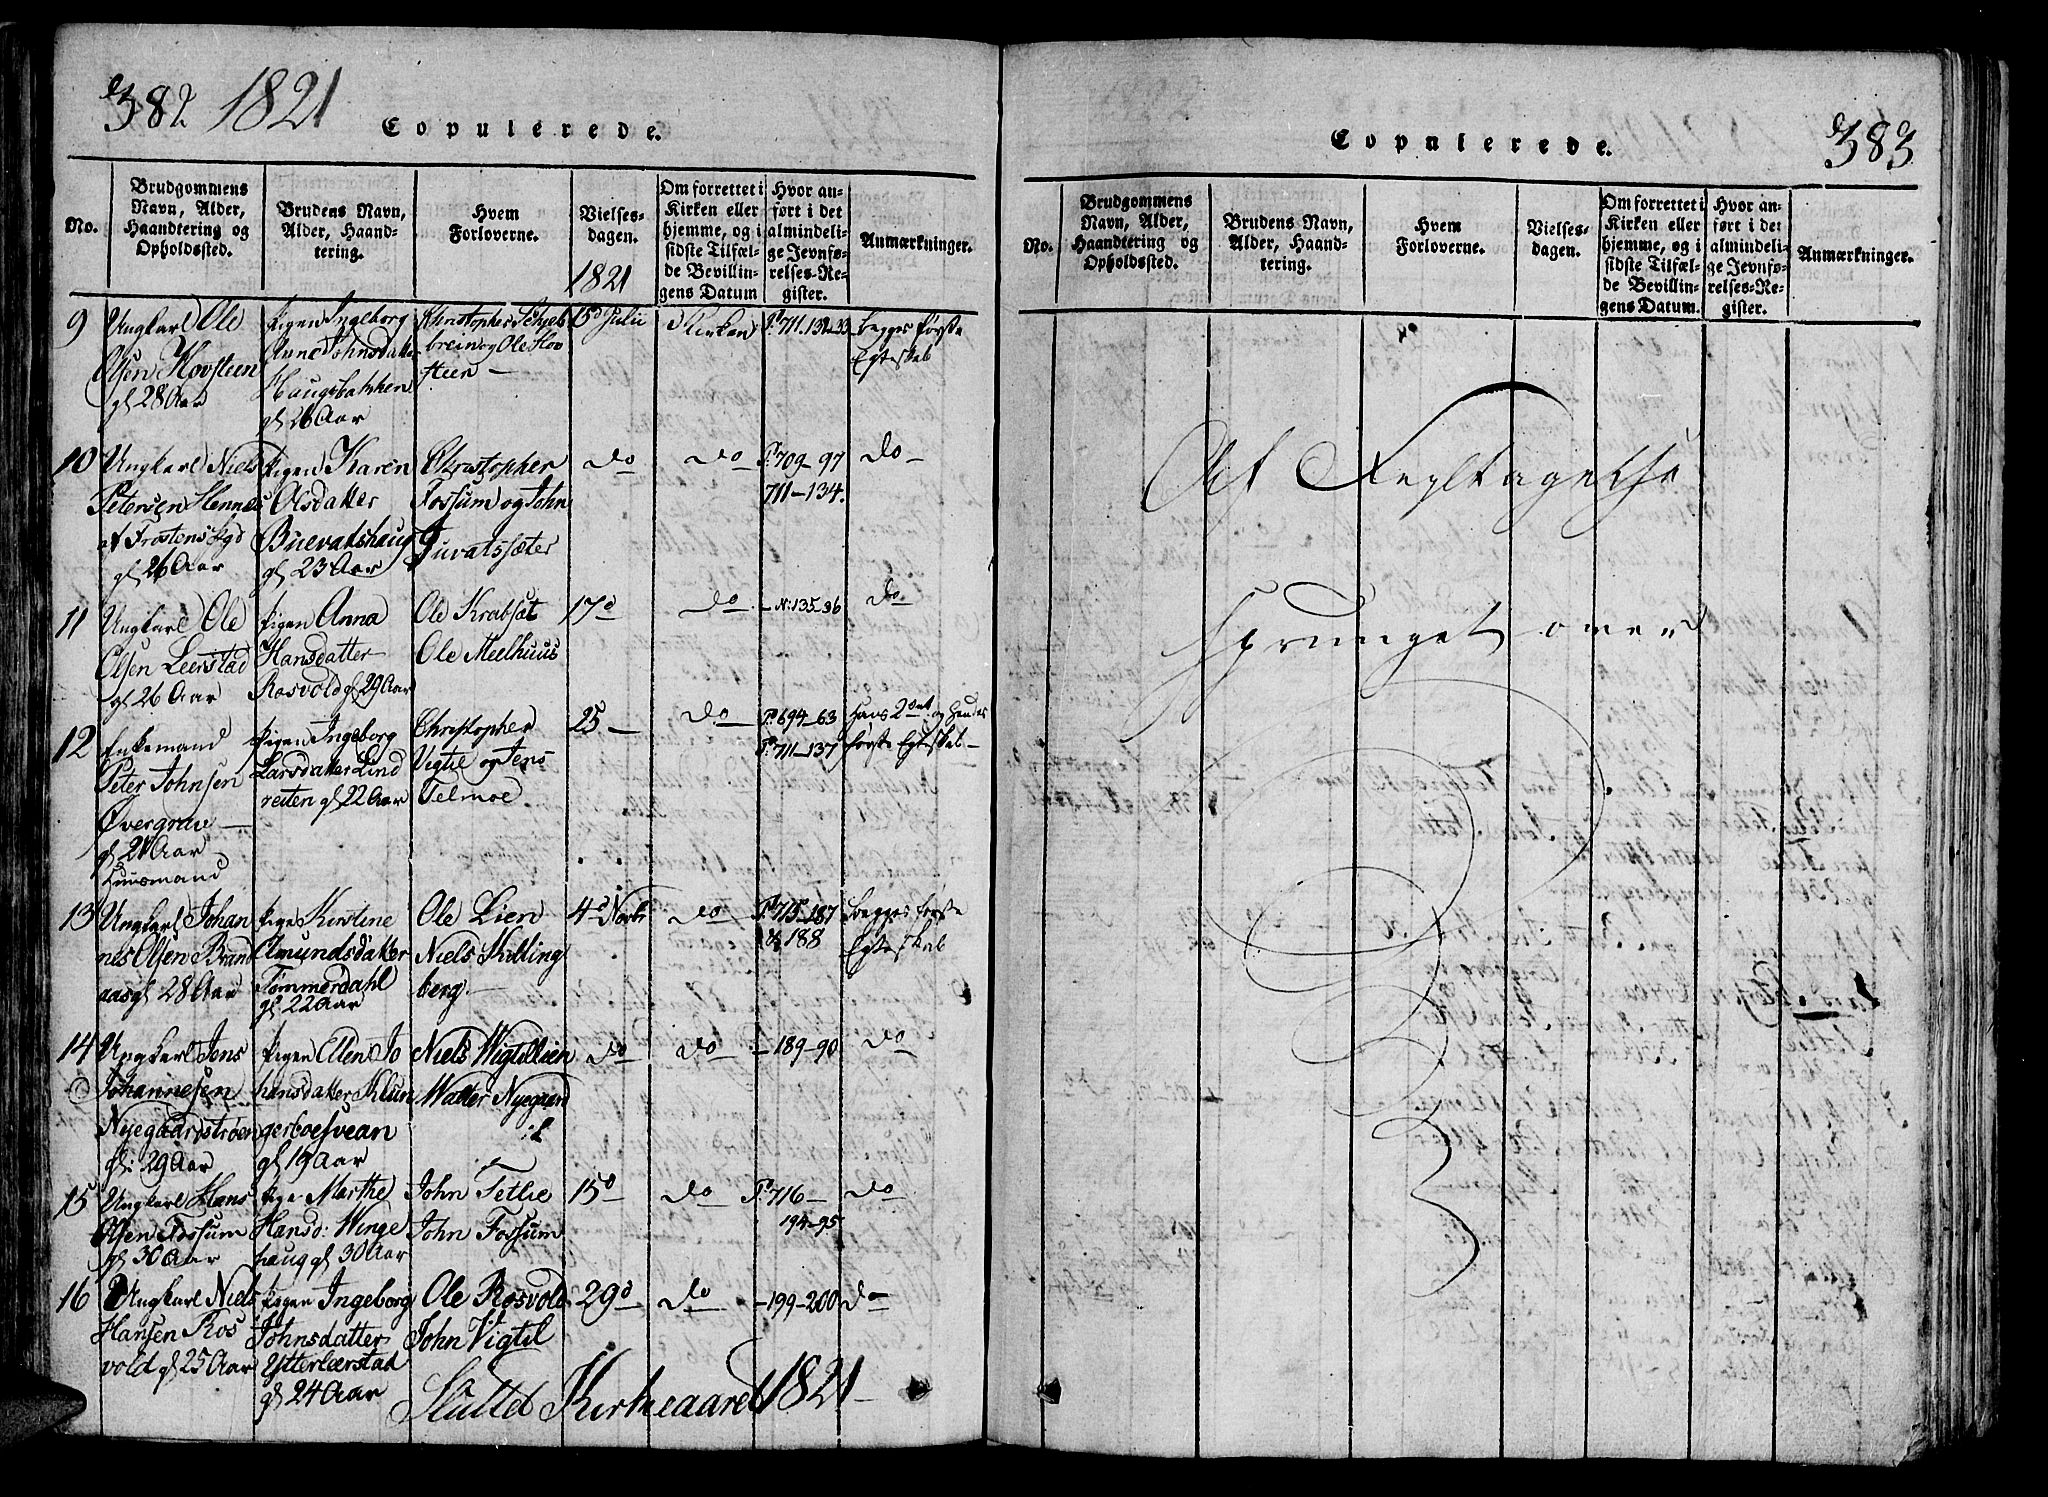 382 1821
Copulerede.
No.
Brudgommens
Navn, Alder,
Haandtering og
Opholdssted.
Brudens Navn,
Alder, Haand-
tering.
Hvem
Forloverne.
Vielses-
dagen.
1821
Om forrettet i
Kirken eller
hjemme, og i
sidste Tilfæl-
de Bevillin-
gens Datum
Hvor an-
ført i det
almindeli-
ge Jevnfø-
relses-Re-
gister.
Anmærkninger.
9
Ungkarl Ole
Olsen Hovsteen
gl 28 Aar
Pigen Ingeborg
Anne Johnsdatter
Haugsbakken
gl 26 Aar
Christopher
brein og Ole Hov
steen
15d Julii
Kirken
P: 711. 132-33
begges første
Egteskab
10
Ungkarl Niels
Petersen Hennes
af Frostens
gl 26 Aar
Pigen Karen
Olsdatter
Buevatshaug
gl 23 Aar
Christopher
Fossum og John
Juvatssæter
do
do
P: 709-97
711-134.
do
11
Ungkarl Ole
Olsen Leerstad
gl 26 Aar
Pigen Anna
Hansdatter
Rosvold gl 29 Aar
Ole Krabsæt
Ole Meelhuus
17d
do
- N: 135-36
do
12
Enkemand
Peter Johnsen
Øvergrav
gl 21 Aar
Huusmand
Pigen Ingeborg
Larsdatter Lind
reiten gl 22 Aar
Christopher
Vigtil og Jens
Telmoe
25
do
P: 694-63
P: 711-137
hans 2det og hendes
første Egteskab
13
Ungkarl Johan
nes Olsen Brand
aas gl 28 Aar
Pige Kirstine
Amundsdatter
Tømmerdahl
gl 22 Aar
Ole Lien
Niels Skilling
berg
4d Novb:
do
P: 715-187
& 188
begges første
Egteskab
14
Ungkarl Jens
Johannesen
Nyegaardstrøen
gl: 29 Aar
Pigen Ellen Jo
hansdatter Klun
gerboesvean
gl 19 Aar
Niels Wigtillien
Walter Nyegaard
do
do
- 189-90
do
15
Ungkarl Hans
Olsen Fossum
gl 30 Aar
Pige Marthe
Hansd: Winge
haug gl 30 Aar
John Tetlie
John Fossum
15d
do
P: 716-
194-95
do
16
Ungkarl Niels
Hansen Ros
vold gl 25 Aar
Pigen Ingeborg
Johnsdatter
Ytterleerstad
gl 24 Aar
Ole Rosvold
John Vigtil
29d
do
- 199-200
do
Sluttet Kirkeaaret 1821
Copulerede.
383
No.
Brudgommens
Navn, Alder,
Haandtering og
Opholdssted.
Brudens Navn,
Alder, Haand-
tering.
Hvem
Forloverne.
Vielses-
dagen.
Om forrettet i
Kirken eller
hjemme, og i
sidste Tilfæl-
de Bevillin-
gens Datum.
Hvor an-
ført i det
almindeli-
ge Jevnfø-
relses-Re-
gister.
Anmærkninger.
Af Feyltagelse
sprunget over